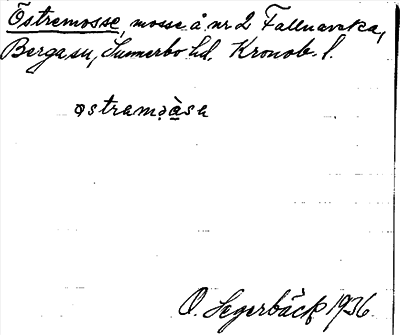 Östremosse, mosse å nr 2 Fallnaveka,
Berga sn, Sunnerbo hd. Kronob. l.
östramòsa
O. Segerbäck 1936.